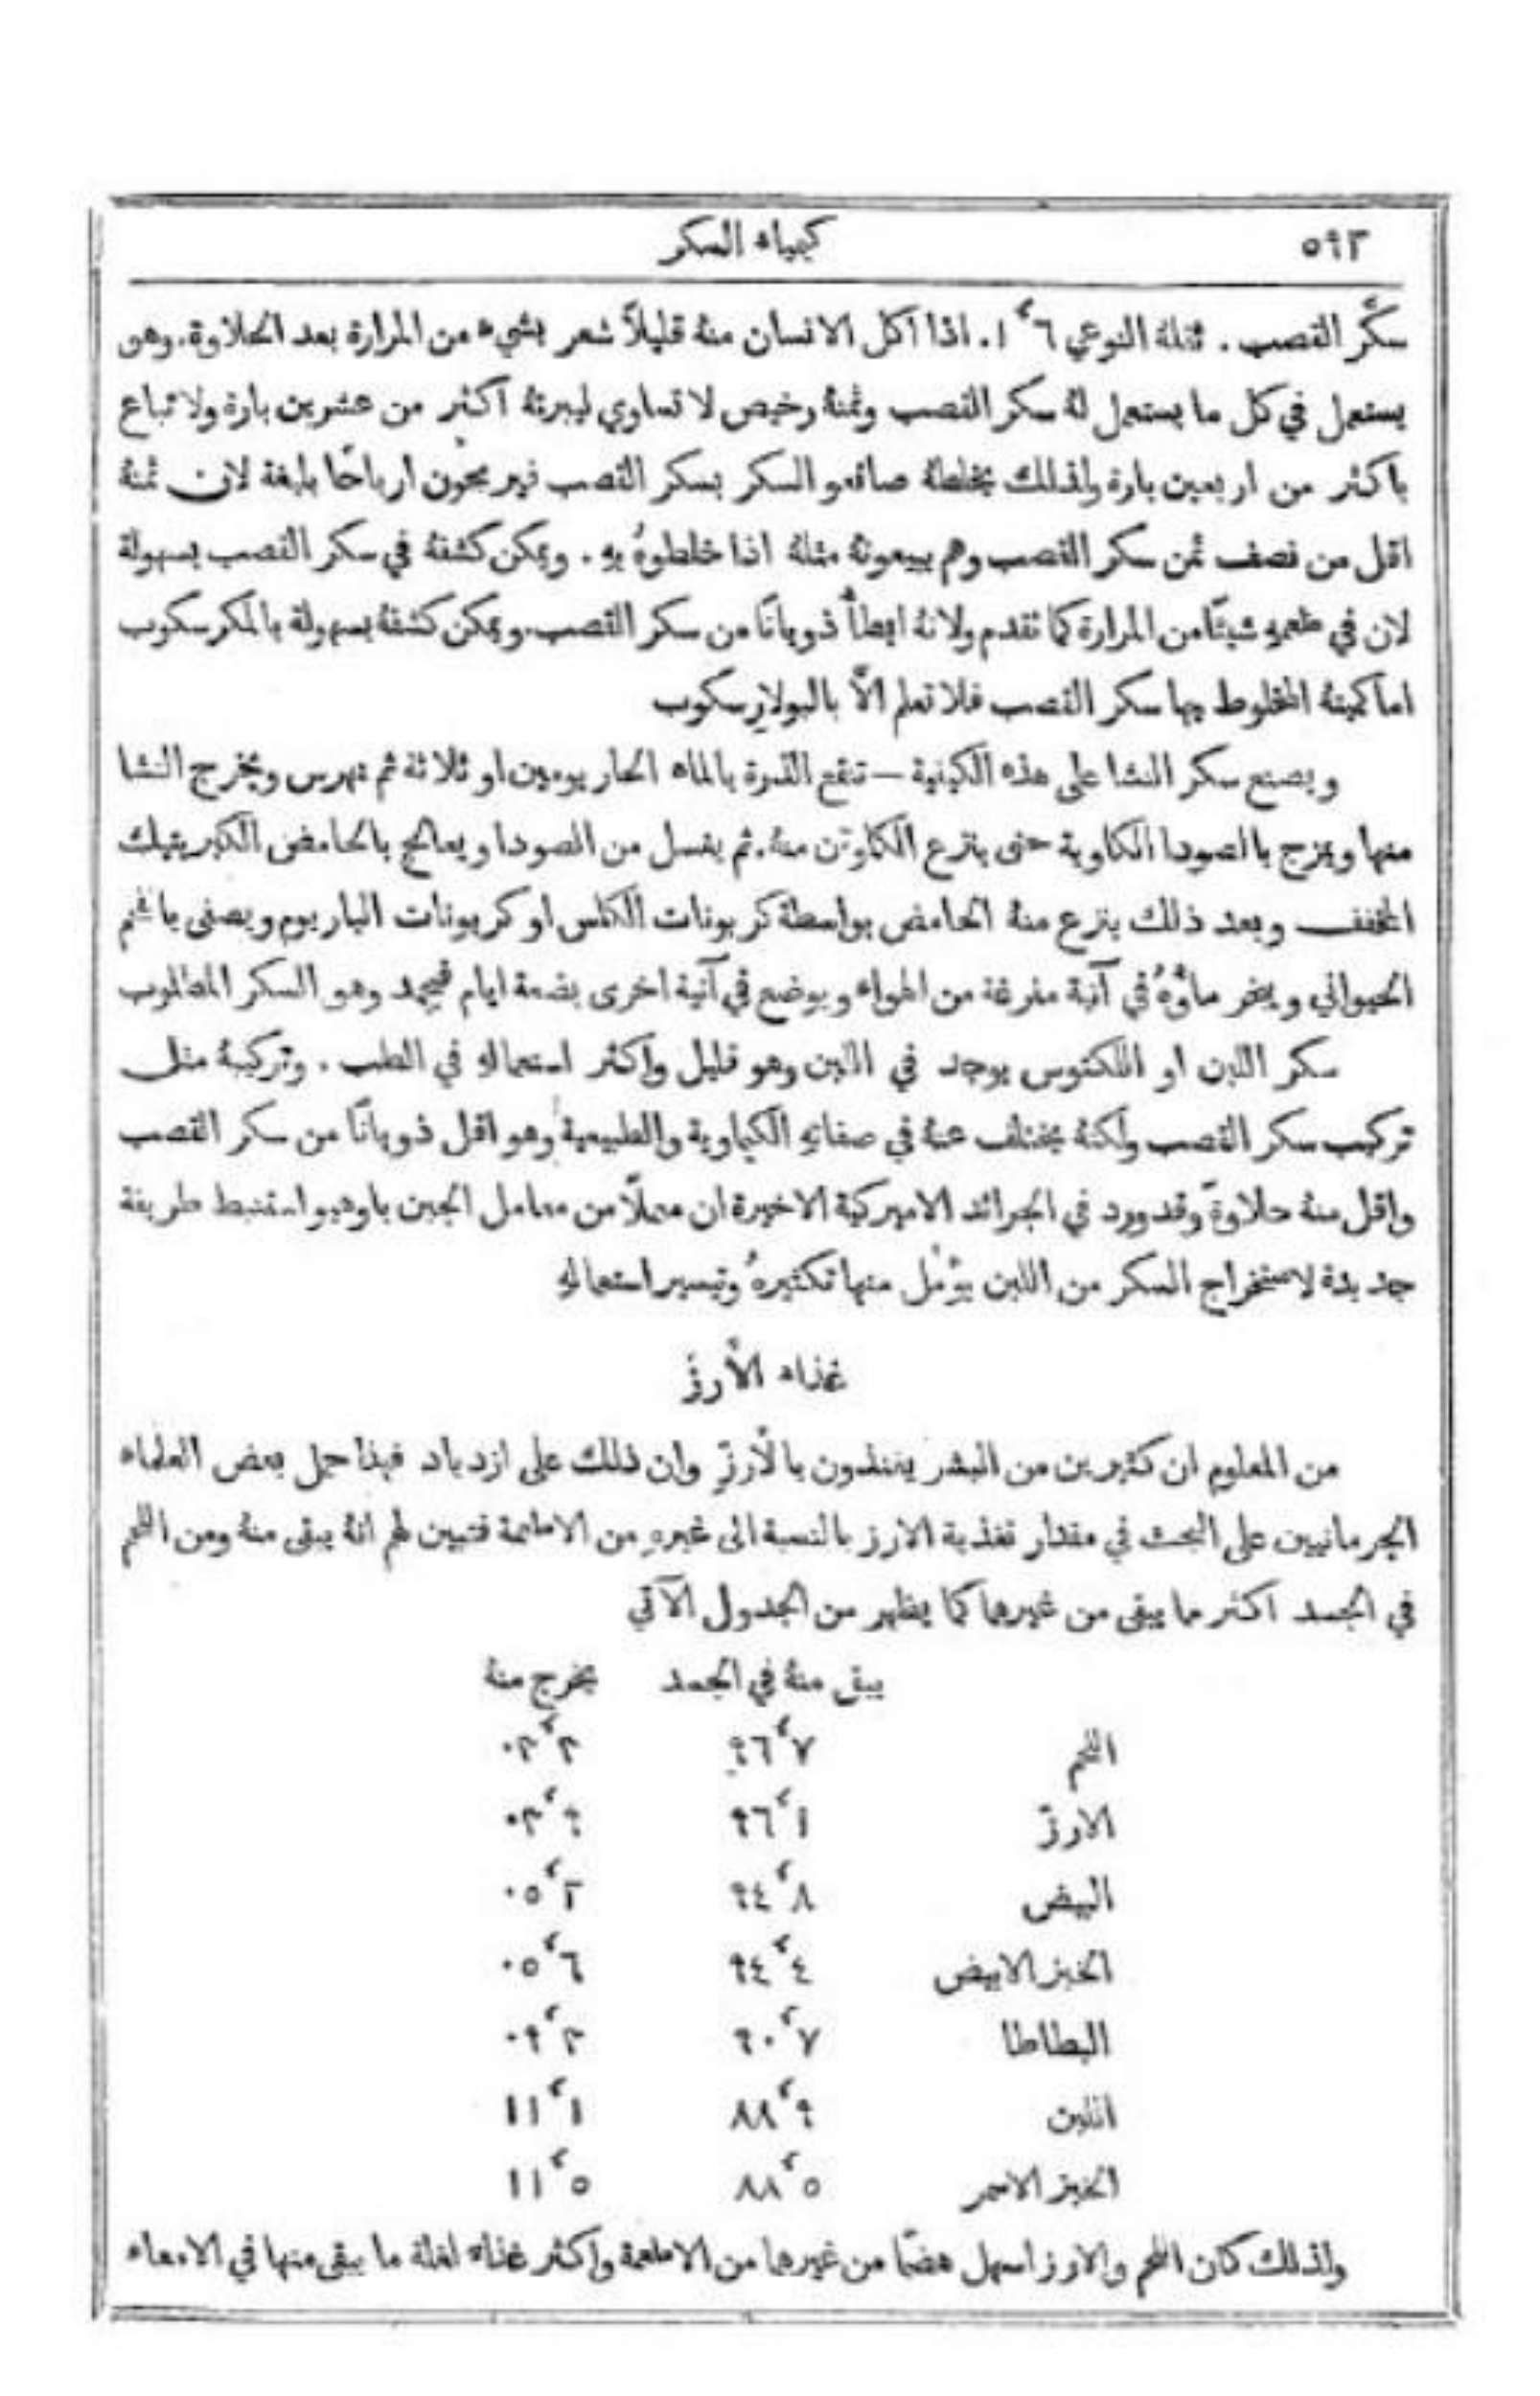 ٥٩٢ كيمياء السكر
سكَّر القصب . ثقلهُ النوعي ١٬٦. اذا اكل الانسان منهُ قليلاً شعر بشيء من المرارة بعد الحلاوة. وهو
يستعمل في كل ما يستعمل لهُ سكر القصب وثمنهُ رخيص لا تساوي ليبرتهُ اكثر من عشرين بارة ولا تباع
باكثر من اربعين بارة ولذلك يخلطهُ صانعو السكر بسكر القصب فيربحون ارباحًا بليغة لان ثمنهُ
اقل من نصف ثمن سكر القصب وهم يبيعونهُ مثلهُ اذا خلطوهُ بهِ . ويمكن كشفهُ في سكر القصب بسهولة
لان في طعمهِ شيئًا من المرارة كما تقدم ولانهُ ابطأُ ذوبانًا من سكر القصب. ويمكن كشفهُ بسهولة بالمكرسكوب
اما كميتهُ المخلوط بها سكر القصب فلا تعلم الاَّ بالبولارِسكوب
ويصنع سكر النشا على هذه الكيفية – تنقع الذرة بالماء الحار يومين او ثلاثة ثم تهرس ويخرج النشا
منها ويمزج بالصودا الكاوية حتى ينزع الكلوتن منهُ. ثم يغسل من الصودا ويعالج بالحامض الكبريتيك
المخفف وبعد ذلك ينزع منهُ الحامض بواسطة كربونات الكلس او كربونات الباريوم ويصفى بالفحم
الحيواني ويبخر ماؤُهُ في آنية مفرغة من الهواء ويوضع في آنية اخرى بضعة ايام فيجمد وهو السكر المطلوب
سكر اللبن او اللكتوس يوجد في اللبن وهو قليل واكثر استعمالهِ في الطب . وتركيبهُ مثل
تركيب سكر القصب ولكنهُ يختلف عنهُ في صفاتهِ الكيماوية والطبيعية وهو اقل ذوبانًا من سكر القصب
واقل منهُ حلاوةً وقد ورد في الجرائد الاميركية الاخيرة ان معملاً من معامل الجبن باوهيو استنبط طريقة
جديدة لاستخراج السكر من اللبن يؤمل منها تكثيرهُ وتيسير استعمالهِ
غذاء الأَرزّ
من المعلوم ان كثيرين من البشر يغتذون بالأَرزّ وان ذلك على ازدياد فهذا حمل بعض العلماء
الجرمانيين على البحث في مقدار تغذية الارز بالنسبة الى غيرهِ من الاطعمة فتبين لهم انهُ يبقى منهُ ومن اللحم
في الجسد اكثر ما يبقى من غيرها كما يظهر من الجدول الآتي
يبقى منهُ في الجسد يخرج منهُ
اللحم ٩٦٬٧ ٠٣٬٣
الارزّ ٩٦٬١ ٠٣٬٩
البيض ٩٤٬٨ ٠٥٬٢
الخبز الابيض ٩٤٬٤ ٠٥٬٦
البطاطا ٩٠٬٧ ٠٩٬٣
اللبن ٨٨٬٩ ١١٬١
الخبز الاسمر ٨٨٬٥ ١١٬٥
ولذلك كان اللحم والارز اسهل هضمًا من غيرها من الاطعمة واكثر غذاء لقلة ما يبقى منها في الامعاء